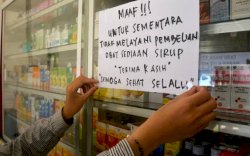 MAAF!!!
UNTUK SEMENTARA
TIDAK MELAYANI PEMBELIAN
OBAT SEDIAAN SIRUP
"TERIMA KASIH"
"SEMOGA SEHAT SELALU"